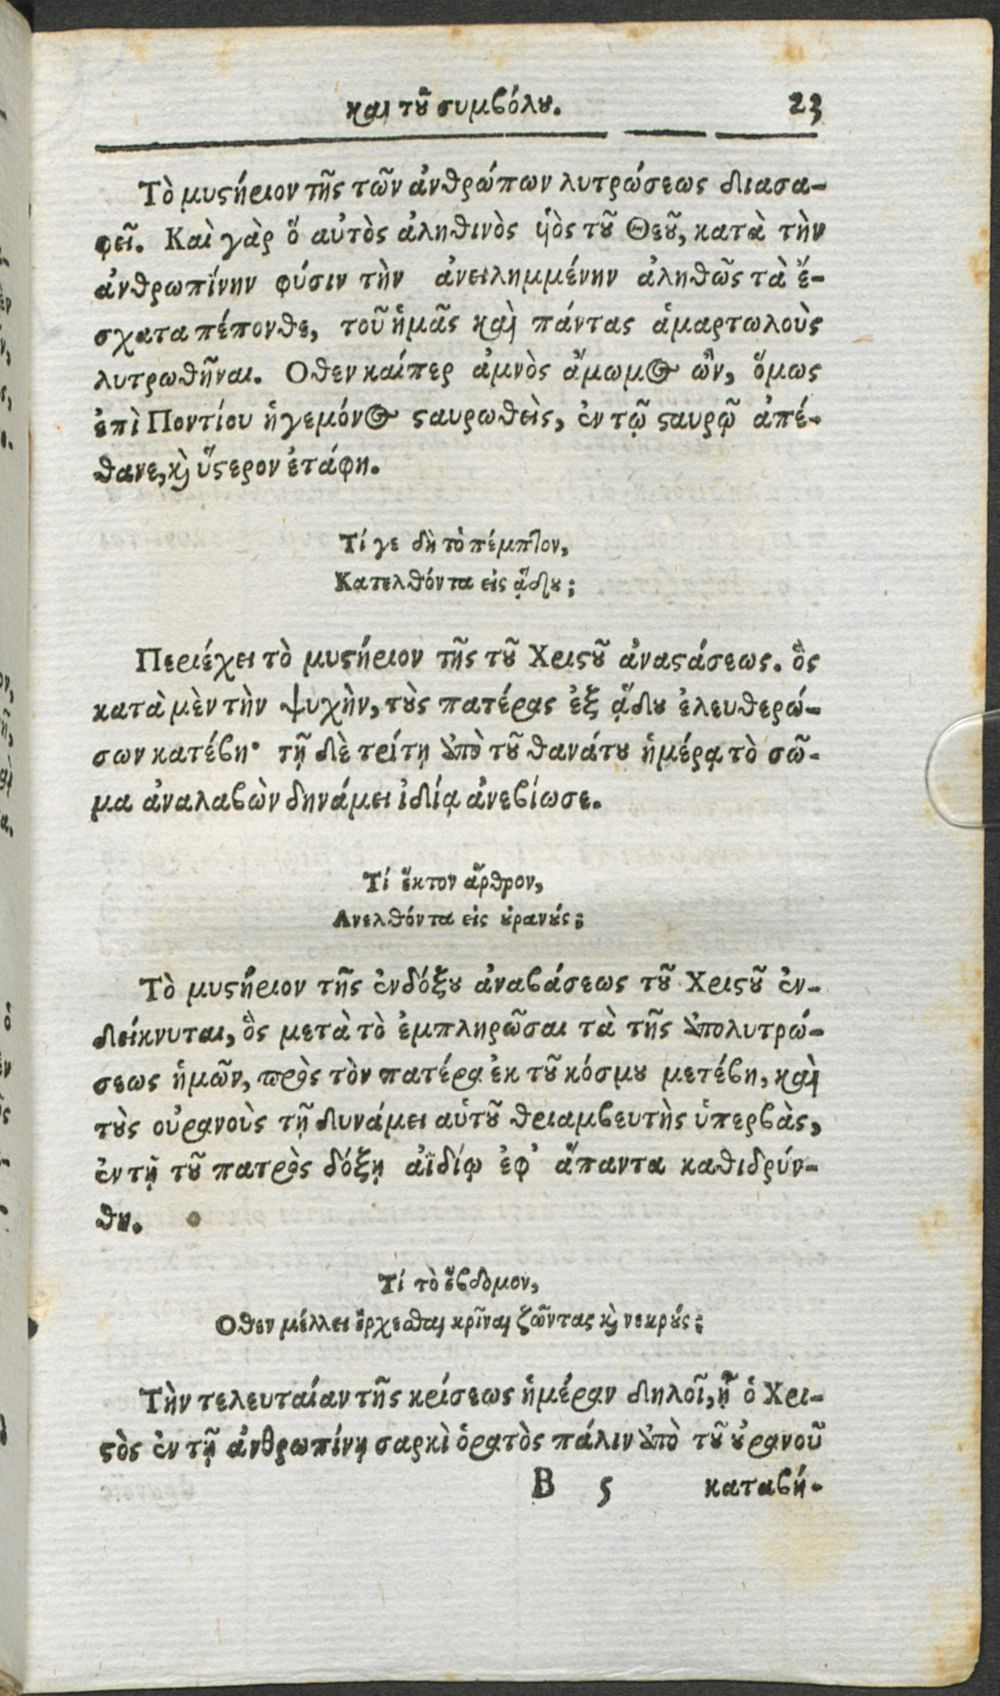 καὶ τοῦ συμβόλου. 23
Τὸ μυστήριον τῆς τῶν ἀνθρώπων λυτρώσεως διασα-
φεῖ. Καὶ γὰρ ὅ αὐτὸς ἀληθινὸς ὑὸς τοῦ Θεοῦ, κατὰ τὴν
ἀνθρωπίνην φύσιν τὴν ἀνειλημμένην ἀληθῶς τὰ ἔ-
σχατα πέπονθε, τοῦ ἡμᾶς καὶ πάντας ἁμαρτωλοὺς
λυτρωθῆναι. Οθεν καίπερ ἀμνὸς ἄμωμος ὢν, ὅμως
ἐπὶ Ποντίου ἡγεμόνος σταυρωθεὶς, ἐν τῷ σταυρῷ ἀπέ-
θανε, καὶ ὕστερον ἐτάφη.
Τί γε δὴ τὸ πέμπτον,
Κατελθόντα εἰς ᾅδου;
Περιέχει τὸ μυστήριον τῆς τοῦ Χριστοῦ ἀναστάσεως. ὃς
κατὰ μὲν τὴν ψυχὴν, τοὺς πατέρας ἐξ ᾅδου ἐλευθερώ-
σων κατέβη· τῇ δὲ τρίτῃ ἀπὸ τοῦ θανάτου ἡμέρᾳ τὸ σῶ-
μα ἀναλαβὼν δηνάμει ἰδίᾳ ἀνεβίωσε.
Τί ἕκτον ἄρθρον,
Ανελθόντα εἰς οὐρανούς;
Τὸ μυστήριον τῆς ἐνδόξου ἀναβάσεως τοῦ Χριστοῦ ἐν-
δείκνυται, ὃς μετὰ τὸ ἐμπληρῶσαι τὰ τῆς ἀπολυτρώ-
σεως ἡμῶν, πρὸς τὸν πατέρα ἐκ τοῦ κόσμου μετέβη, καὶ
τοὺς οὐρανοὺς τῇ δυνάμει αὑτοῦ θριαμβευτὴς ὑπερβὰς,
ἐν τῇ τοῦ πατρὸς δόξῃ ἀϊδίῳ ἐφ᾽ ἅπαντα καθιδρύν-
θη.
Τί τὸ ἕβδομον,
Οθεν μέλλει ἔρχεσθαι κρῖναι ζῶντας καὶ νεκρούς;
Τὴν τελευταίαν τῆς κρίσεως ἡμέραν δηλοῖ, ᾗ ὁ Χρι-
στὸς ἐν τῇ ἀνθρωπίνῃ σαρκὶ ὁρατὸς πάλιν ἀπὸ τοῦ οὐρανοῦ
B 5 καταβή-